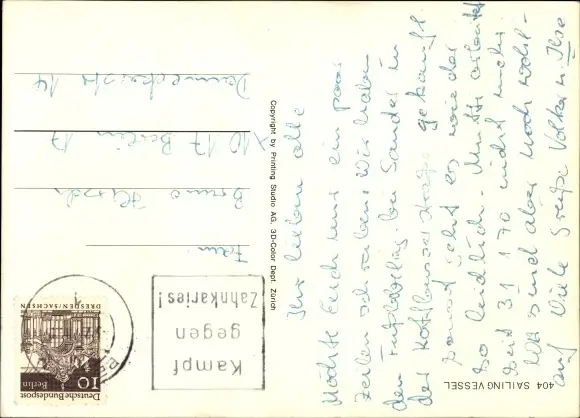 Ihr lieben alle
Möchte Euch nur ein paar
Zeilen schreiben. Wir haben
den bei Sander in
der gekauft.
Sonst geht es wie der
so leidlich. Mutti arbeitet
seit 31 1 70 nicht mehr.
Wir sind aber noch wohl-
auf Viele Grüße Volker u. Ilse
404 SAILING VESSEL
Copyright by Printing Studio AG. 3D-Color Dept. Zürich
Kampf
gegen
Zahnkaries!
Deutsche Bundespost
Berlin
10
DRESDEN/SACHSEN
Fam.
Bruno
X10 17 Berlin 17
14